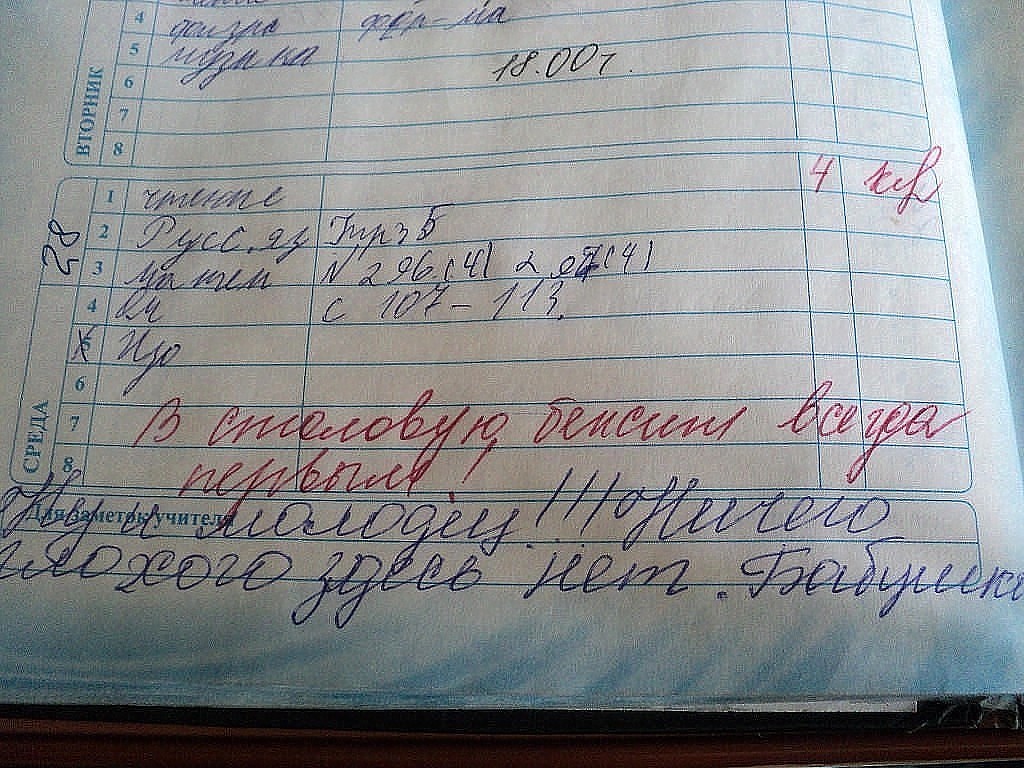 4 физра фор-ма
5 музыка
18.00 г.
6
7
8
ВТОРНИК
1 чтение 4
2 Русс.яз Упр 3 Б
28
3 матем N 296.(4) 297(4)
4 с 107-113.
5 Изо
6
7 В столовую бежит всегда
8 первым!
СРЕДА
Для заметок учителя
Ну и молодец!!! Ничего
плохого здесь нет. Бабушка